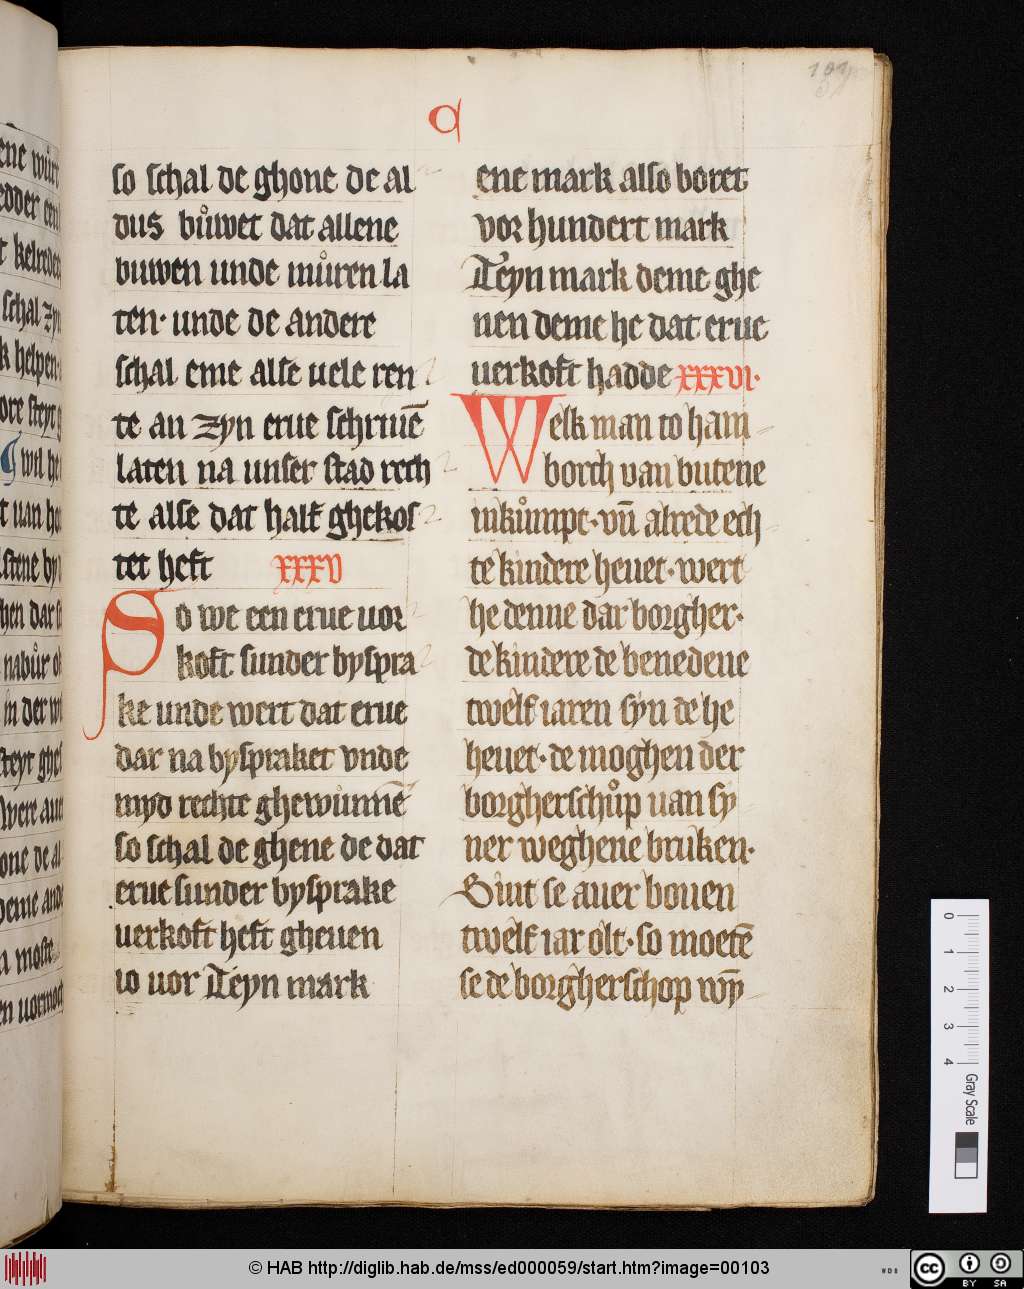 C
101
so schal de ghone de al
dus bůwet dat allene
buwen unde můren la
ten· unde de andere
schal eme alse uele ren
te an zyn erue schriuē
laten na unser stad rech
te alse dat half ghekos
tet heft xxxv
So we een erue uor
koft sunder byspra
ke unde wert dat erue
dar na byspraket vnde
myd rechte ghewunnē
so schal de ghene de dat
erue sunder bysprake
uerkoft heft gheuen
io uor Teyn mark
ene mark also boret
vor hundert mark
Teyn mark deme ghe
nen deme he dat erue
uerkoft hadde xxxvi·
Welk man to ham
borch van butene
inkůmpt· vn̄ alrede ech
te kindere heuet· wert
he denne dar borgher·
de kindere de benedene
twelf iaren syn de he
heuet· de moghen der
borgherschůp uan sy
ner weghene bruken·
Sint se auer bouen
twelf iar olt· so moetē
se de borgherschop wȳ
schal zy
k helpen
wil he
t uan ho
stene by
hen dar s
nabůr o
in der w
steyt ghe
were aue
one de al
deme ande
n moste
en uormoch
0 1 2 3 4 Gray Scale
© HAB http://diglib.hab.de/mss/ed000059/start.htm?image=00103
WDB
cc BY SA